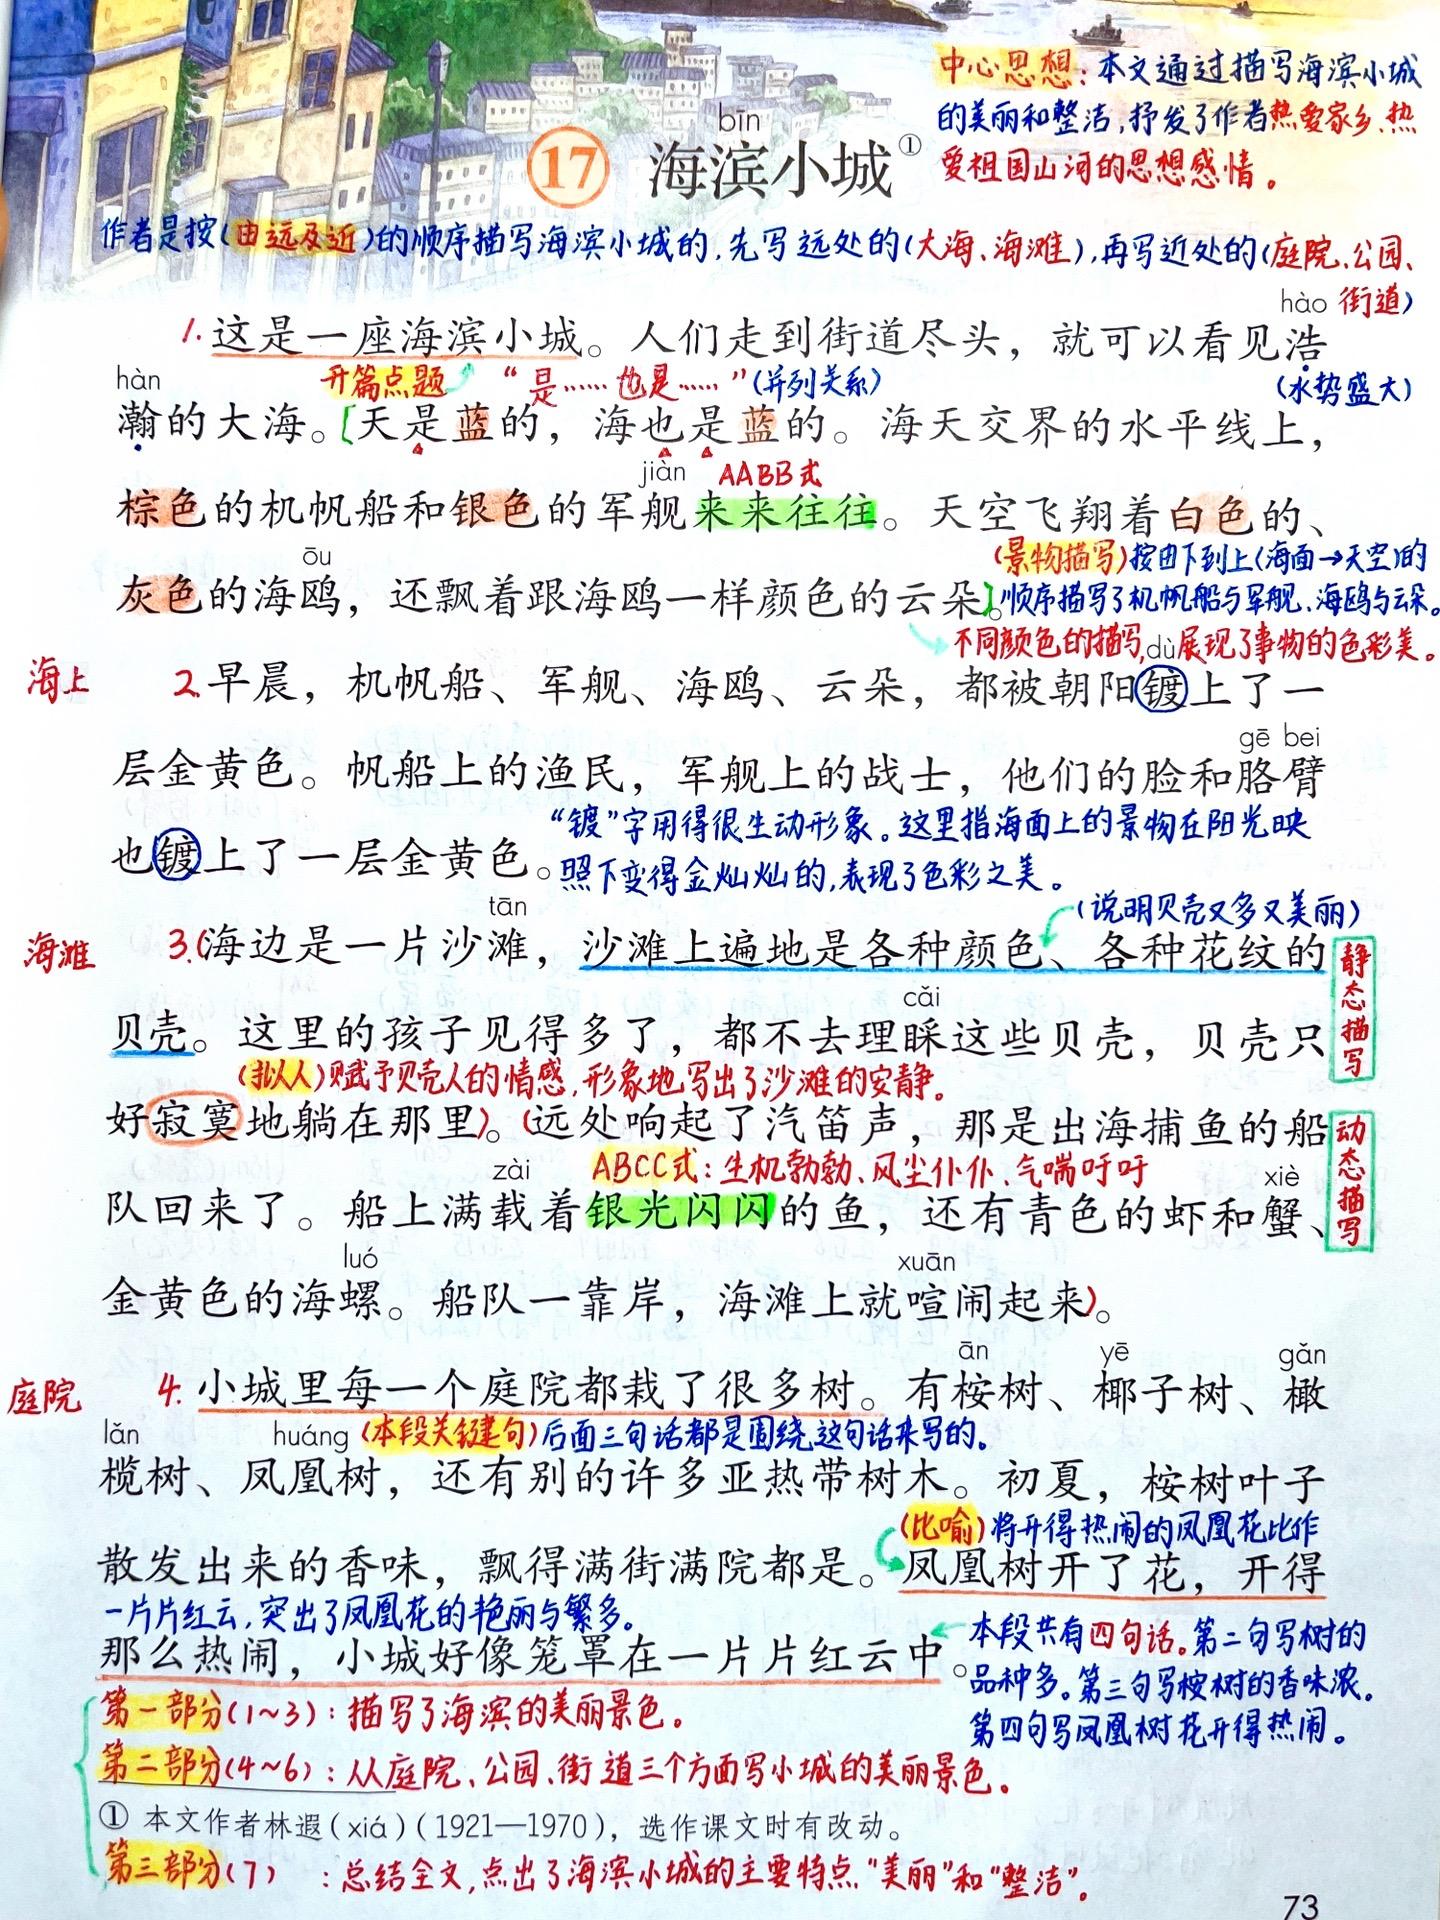 中心思想：本文通过描写海滨小城
的美丽和整洁，抒发了作者热爱家乡、热
爱祖国山河的思想感情。
bīn
17 海滨小城①
作者是按（由远及近）的顺序描写海滨小城的，先写远处的（大海、海滩），再写近处的（庭院、公园、
街道）
hào
1.这是一座海滨小城。人们走到街道尽头，就可以看见浩
hàn
开篇点题 “是……也是……”（并列关系） （水势盛大）
瀚的大海。[天是蓝的，海也是蓝的。海天交界的水平线上，
jiàn AABB式
棕色的机帆船和银色的军舰来来往往。天空飞翔着白色的、
ōu
（景物描写）按由下到上（海面→天空）的
灰色的海鸥，还飘着跟海鸥一样颜色的云朵。]
顺序描写了机帆船与军舰、海鸥与云朵。
不同颜色的描写，展现了事物的色彩美。
dù
海上 2.早晨，机帆船、军舰、海鸥、云朵，都被朝阳镀上了一
gē bei
层金黄色。帆船上的渔民，军舰上的战士，他们的脸和胳臂
“镀”字用得很生动形象。这里指海面上的景物在阳光映
也镀上了一层金黄色。
照下变得金灿灿的，表现了色彩之美。
tān
（说明贝壳又多又美丽）
海滩 3.(海边是一片沙滩，沙滩上遍地是各种颜色、各种花纹的
静态描写
cǎi
贝壳。这里的孩子见得多了，都不去理睬这些贝壳，贝壳只
（拟人）赋予贝壳人的情感，形象地写出了沙滩的安静。
好寂寞地躺在那里)。(远处响起了汽笛声，那是出海捕鱼的船
动态描写
ABCC式：生机勃勃、风尘仆仆、气喘吁吁
zài xiè
队回来了。船上满载着银光闪闪的鱼，还有青色的虾和蟹、
luó xuān
金黄色的海螺。船队一靠岸，海滩上就喧闹起来)。
ān yē gǎn
庭院 4.小城里每一个庭院都栽了很多树。有桉树、椰子树、橄
lǎn huáng
（本段关键句）后面三句话都是围绕这句话来写的。
榄树、凤凰树，还有别的许多亚热带树木。初夏，桉树叶子
（比喻）将开得热闹的凤凰花比作
散发出来的香味，飘得满街满院都是。凤凰树开了花，开得
一片片红云，突出了凤凰花的艳丽与繁多。
那么热闹，小城好像笼罩在一片片红云中。
本段共有四句话。第二句写树的
品种多。第三句写桉树的香味浓。
第四句写凤凰树花开得热闹。
第一部分（1~3）：描写了海滨的美丽景色。
第二部分（4~6）：从庭院、公园、街道三个方面写小城的美丽景色。
① 本文作者林遐（xiá）（1921—1970），选作课文时有改动。
第三部分（7）：总结全文，点出了海滨小城的主要特点“美丽”和“整洁”。
73